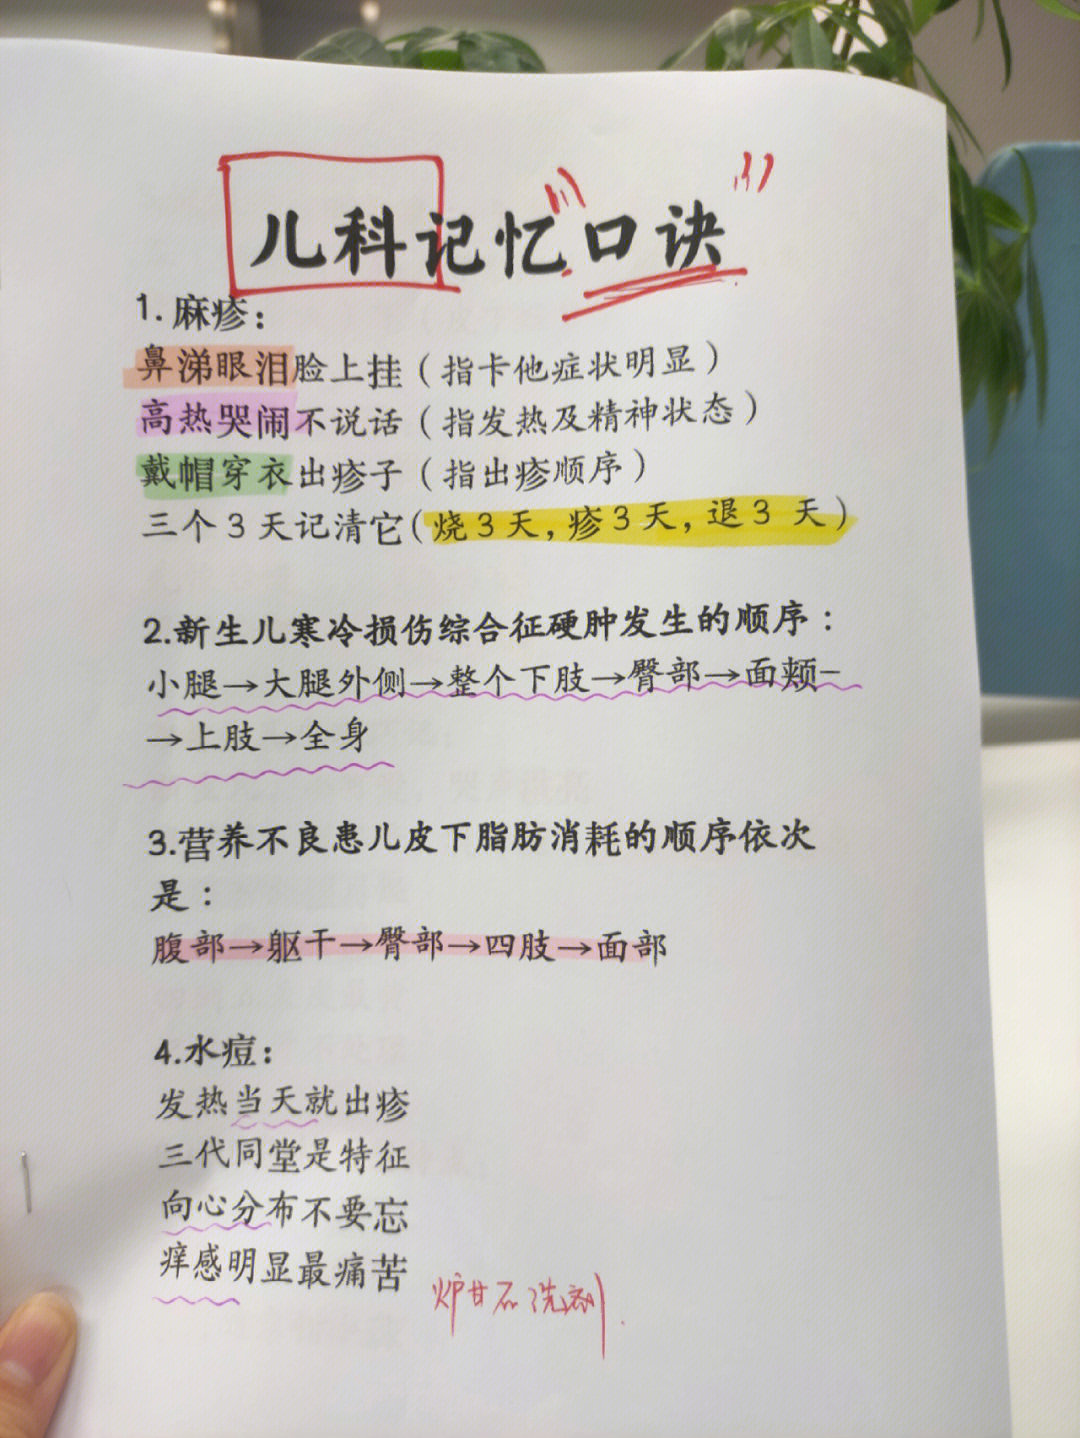 儿科记忆口诀
1.麻疹：
鼻涕眼泪脸上挂（指卡他症状明显）
高热哭闹不说话（指发热及精神状态）
戴帽穿衣出疹子（指出疹顺序）
三个3天记清它（烧3天，疹3天，退3 天）
2.新生儿寒冷损伤综合征硬肿发生的顺序：
小腿→大腿外侧→整个下肢→臀部→面颊-
→上肢→全身
3.营养不良患儿皮下脂肪消耗的顺序依次
是：
腹部→躯干→臀部→四肢→面部
4.水痘：
发热当天就出疹
三代同堂是特征
向心分布不要忘
痒感明显最痛苦
炉甘石洗剂